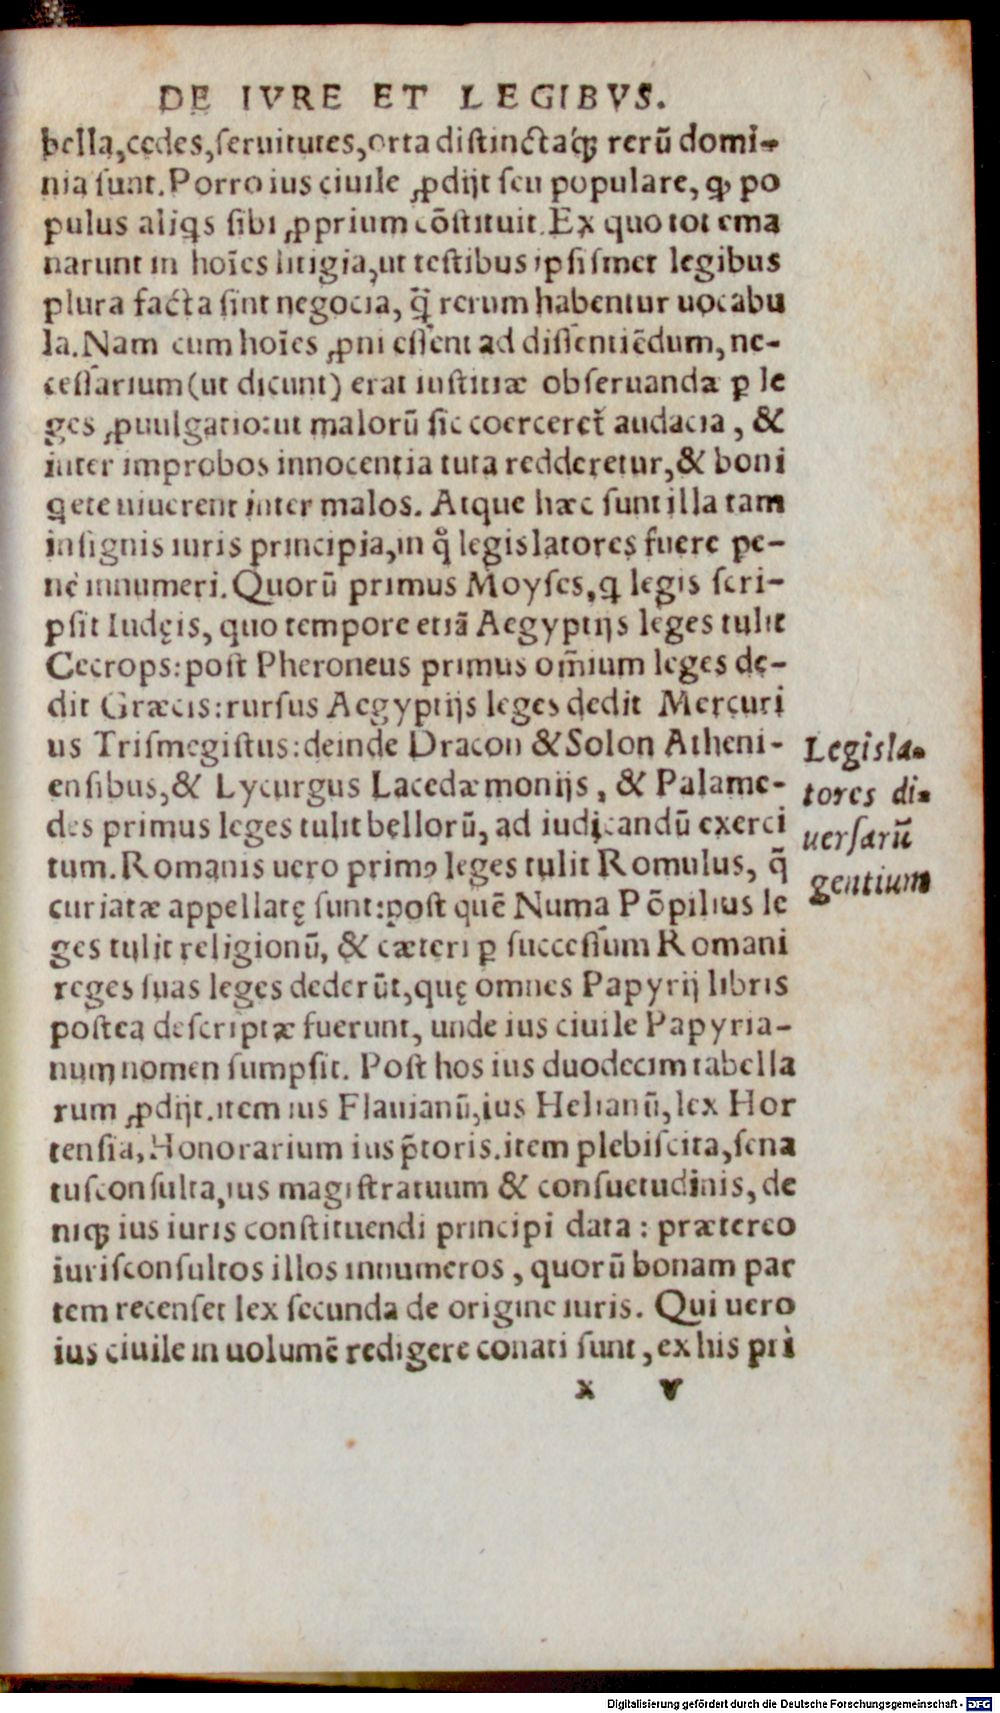 DE IVRE ET LEGIBVS.
bella, cędes, ſeruitutes, orta diſtinctaq́ꝫ rerū domi-
nia ſunt. Porro ius ciuile ꝓdijt ſeu populare, ꝙ po
pulus aliꝗs ſibi ꝓprium cōſtituit. Ex quo tot ema
narunt in hoīes litigia, ut teſtibus ipſiſmet legibus
plura facta ſint negocia, q̄̃ rerum habentur uocabu
la. Nam cum hoīes ꝓni eſſent ad diſſentiēdum, ne-
ceſſarium (ut dicunt) erat iuſtitiæ obſeruanda ꝑ le
ges ꝓuulgatio: ut malorū ſic coerceret᷑ audacia, &
inter improbos innocentia tuta redderetur, & boni
ꝗete uiuerent inter malos. Atque hæc ſunt illa tam
inſignis iuris principia, in qͦ legislatores fuere pe-
nè innumeri. Quorū primus Moyſes, ꝗ legis ſcri-
pſit Iudęis, quo tempore etiā Aegyptijs leges tulit
Cecrops: poſt Pheroneus primus om̄ium leges de-
dit Græcis: rurſus Aegyptijs leges dedit Mercuri
us Triſmegiſtus: deinde Dracon & Solon Atheni-
enſibus, & Lycurgus Lacedæmonijs, & Palame-
des primus leges tulit bellorū, ad iudicandū exerci
tum. Romanis uero primꝰ leges tulit Romulus, q̄
curiatæ appellatę ſunt: poſt quē Numa Pōpilius le
ges tulit religionū, & cæteri ꝑ ſucceſſum Romani
reges ſuas leges dederūt, quę omnes Papyrij libris
poſtea deſcriptæ fuerunt, unde ius ciuile Papyria-
num nomen ſumpſit. Poſt hos ius duodecim tabella
rum ꝓdijt. item ius Flauianū, ius Helianū, lex Hor
tenſia, Honorarium ius p̄toris. item plebiſcita, ſena
tuſconſulta, ius magiſtratuum & conſuetudinis, de
niqꝫ ius iuris conſtituendi principi data: prætereo
iuriſconſultos illos innumeros, quorū bonam par
tem recenſet lex ſecunda de origine iuris. Qui uero
ius ciuile in uolumē redigere conati ſunt, ex his pri
x v
Legisla-
tores di-
uerſarū
gentium
Digitalisierung gefördert durch die Deutsche Forschungsgemeinschaft - DFG